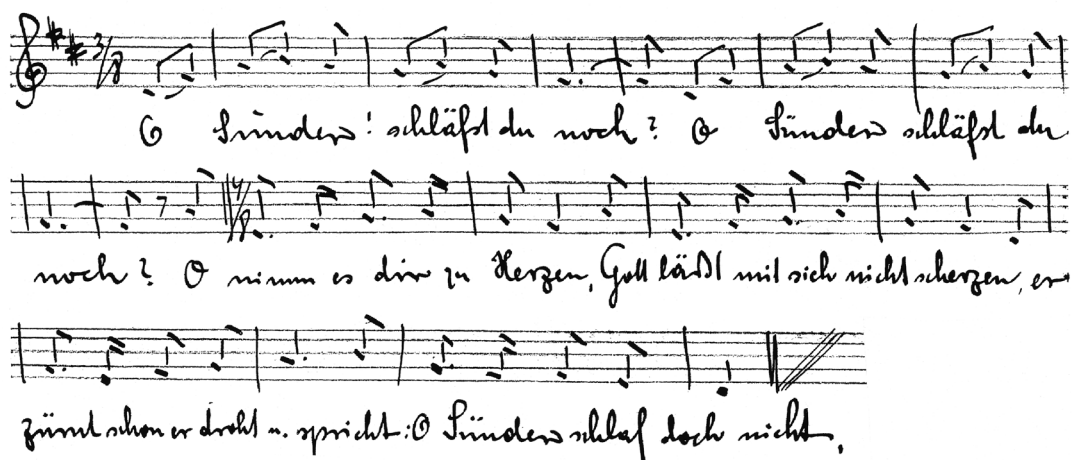 3/8
O Sünder! schläfst du noch? O Sünder schläfst du
4/8
noch? O nimm es dir zu Herzen, Gott läßt mit sich nicht scherzen, er
zürnt schon er droht u. spricht: O Sünder schlaf doch nicht,